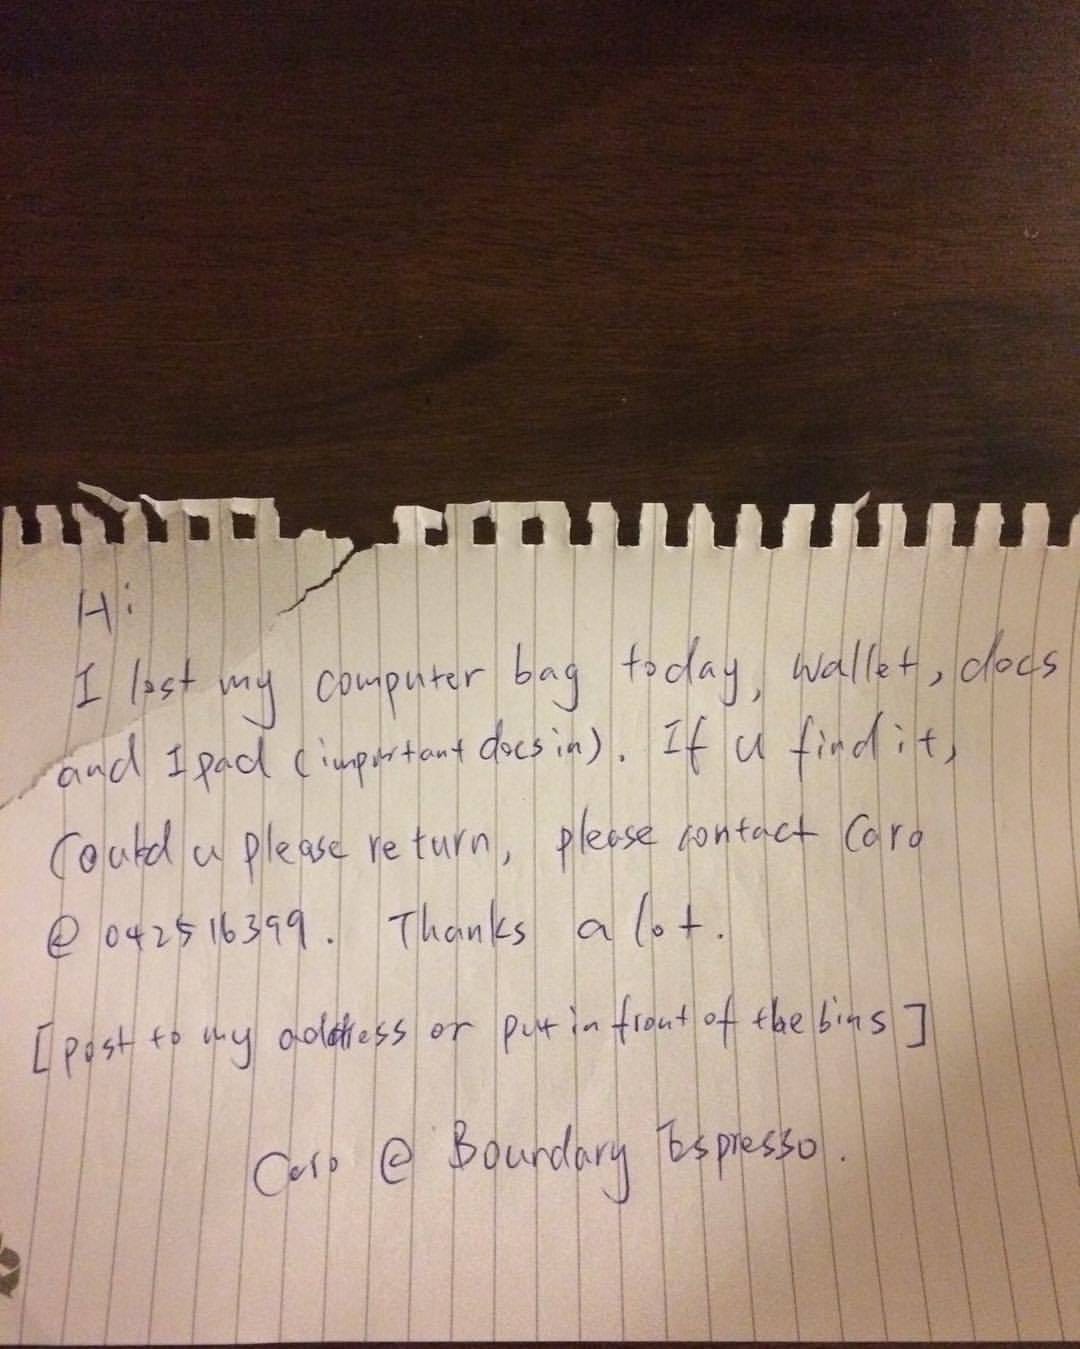 Hi
I lost my computer bag today, wallet, docs
and Ipad (important docs in). If u find it,
Could u please return, please contact Caro
@ 042516399. Thanks a lot.
[post to my address or put in front of the bins]
Caro @ Boundary Espresso.